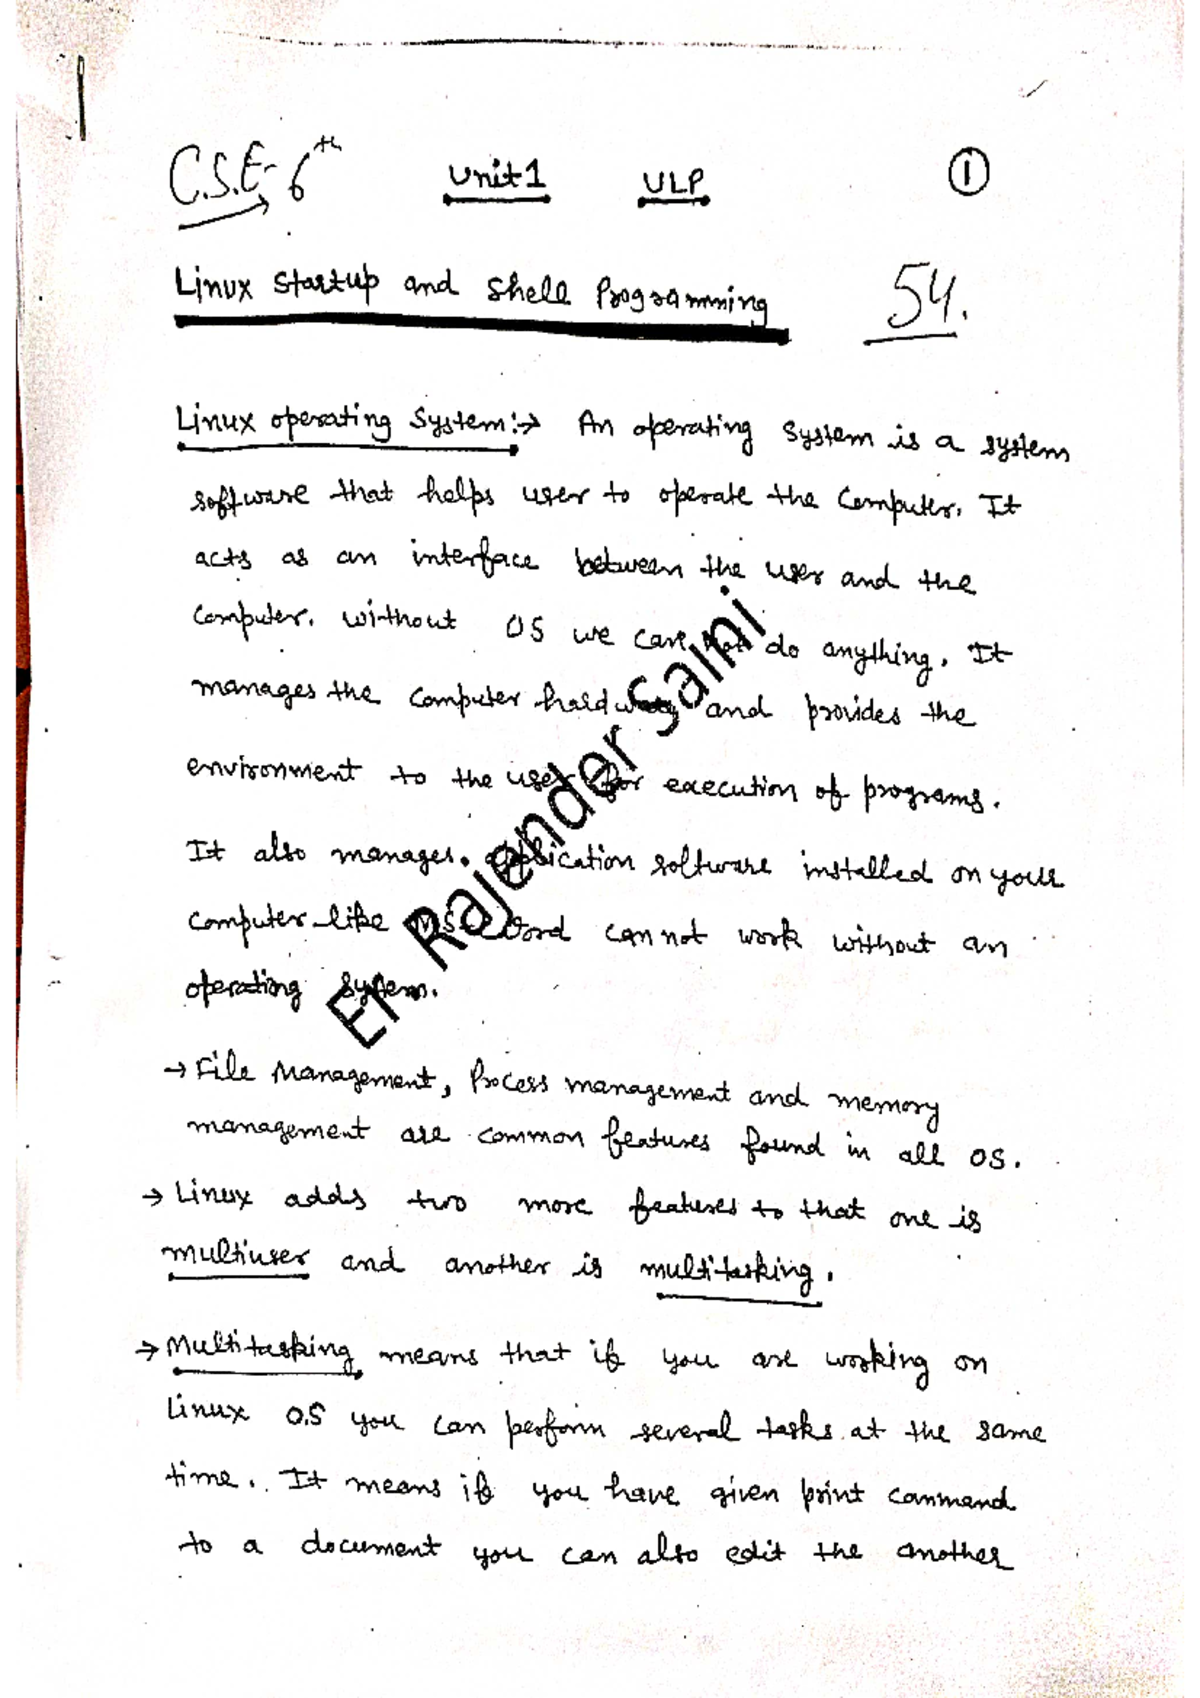 C.S.E- 6th Unit1 ULP 1
Linux Startup and Shell Programming 54.
Linux operating System:→ An operating System is a system
software that helps user to operate the Computer. It
acts as an interface between the user and the
Computer. without OS we can not do anything. It
manages the Computer hardware and provides the
environment to the user for execution of programs.
It also manages. application software installed on your
Computer like MS-Word cannot work without an
operating system.
→ File Management, Process management and memory
management are common features found in all OS.
→ Linux adds two more features to that one is
multiuser and another is multitasking.
→ Multitasking means that if you are working on
Linux O.S you can perform several tasks at the same
time. It means if you have given print command
to a document you can also edit the another
Er. Rajender Saini